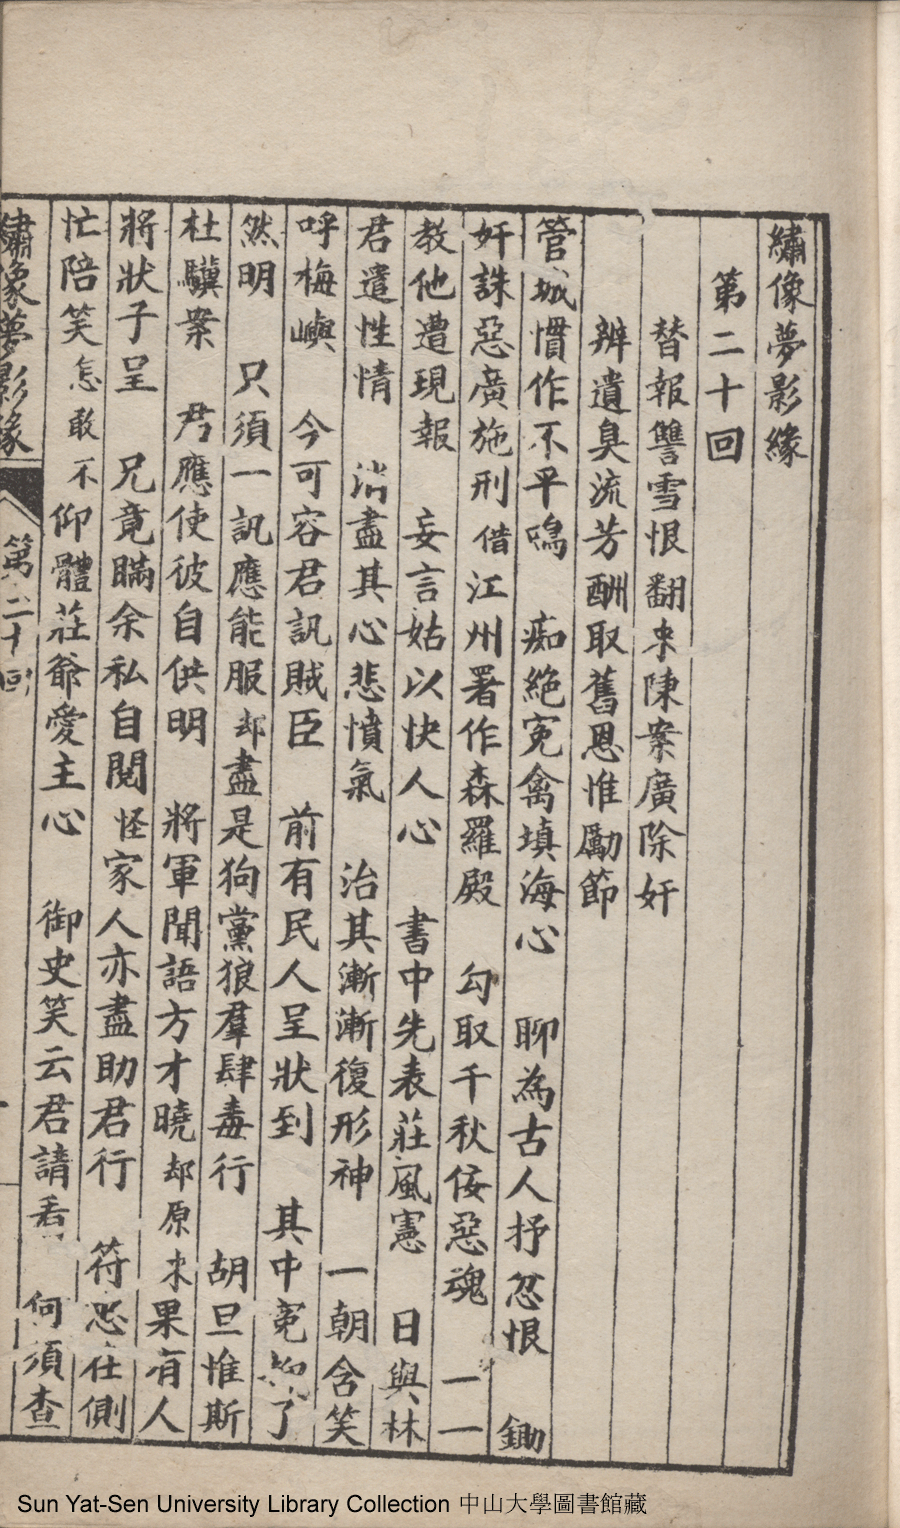 繡像夢影緣
第二十回
替報讐雪恨翻来陳案廣除奸
辨遺臭流芳酬取舊恩惟勵節
管城慣作不平鳴　痴絶冤禽填海心　聊為古人抒忿恨　鋤
奸誅惡廣施刑　借江州署作森羅殿　勾取千秋佞惡魂　一一
教他遭現報　妄言姑以快人心　書中先表莊風憲　日與林
君遣性情　消盡其心悲憤氣　治其漸漸復形神　一朝含笑
呼梅嶼　今可容君訊賊臣　前有民人呈狀到　其中冤抑了
然明　只須一訊應能服　却盡是狗黨狼羣肆毒行　胡旦惟斯
杜驥案　君應使彼自供明　將軍聞語方才曉　却原来果有人
將狀子呈　兄竟瞞余私自閱　怪家人亦盡助君行　符在側
忙陪笑　怎敢不仰體莊爺愛主心　御史笑云君請看　何須查
繡像夢影緣　第二十回
Sun Yat-Sen University Library Collection 中山大學圖書館藏